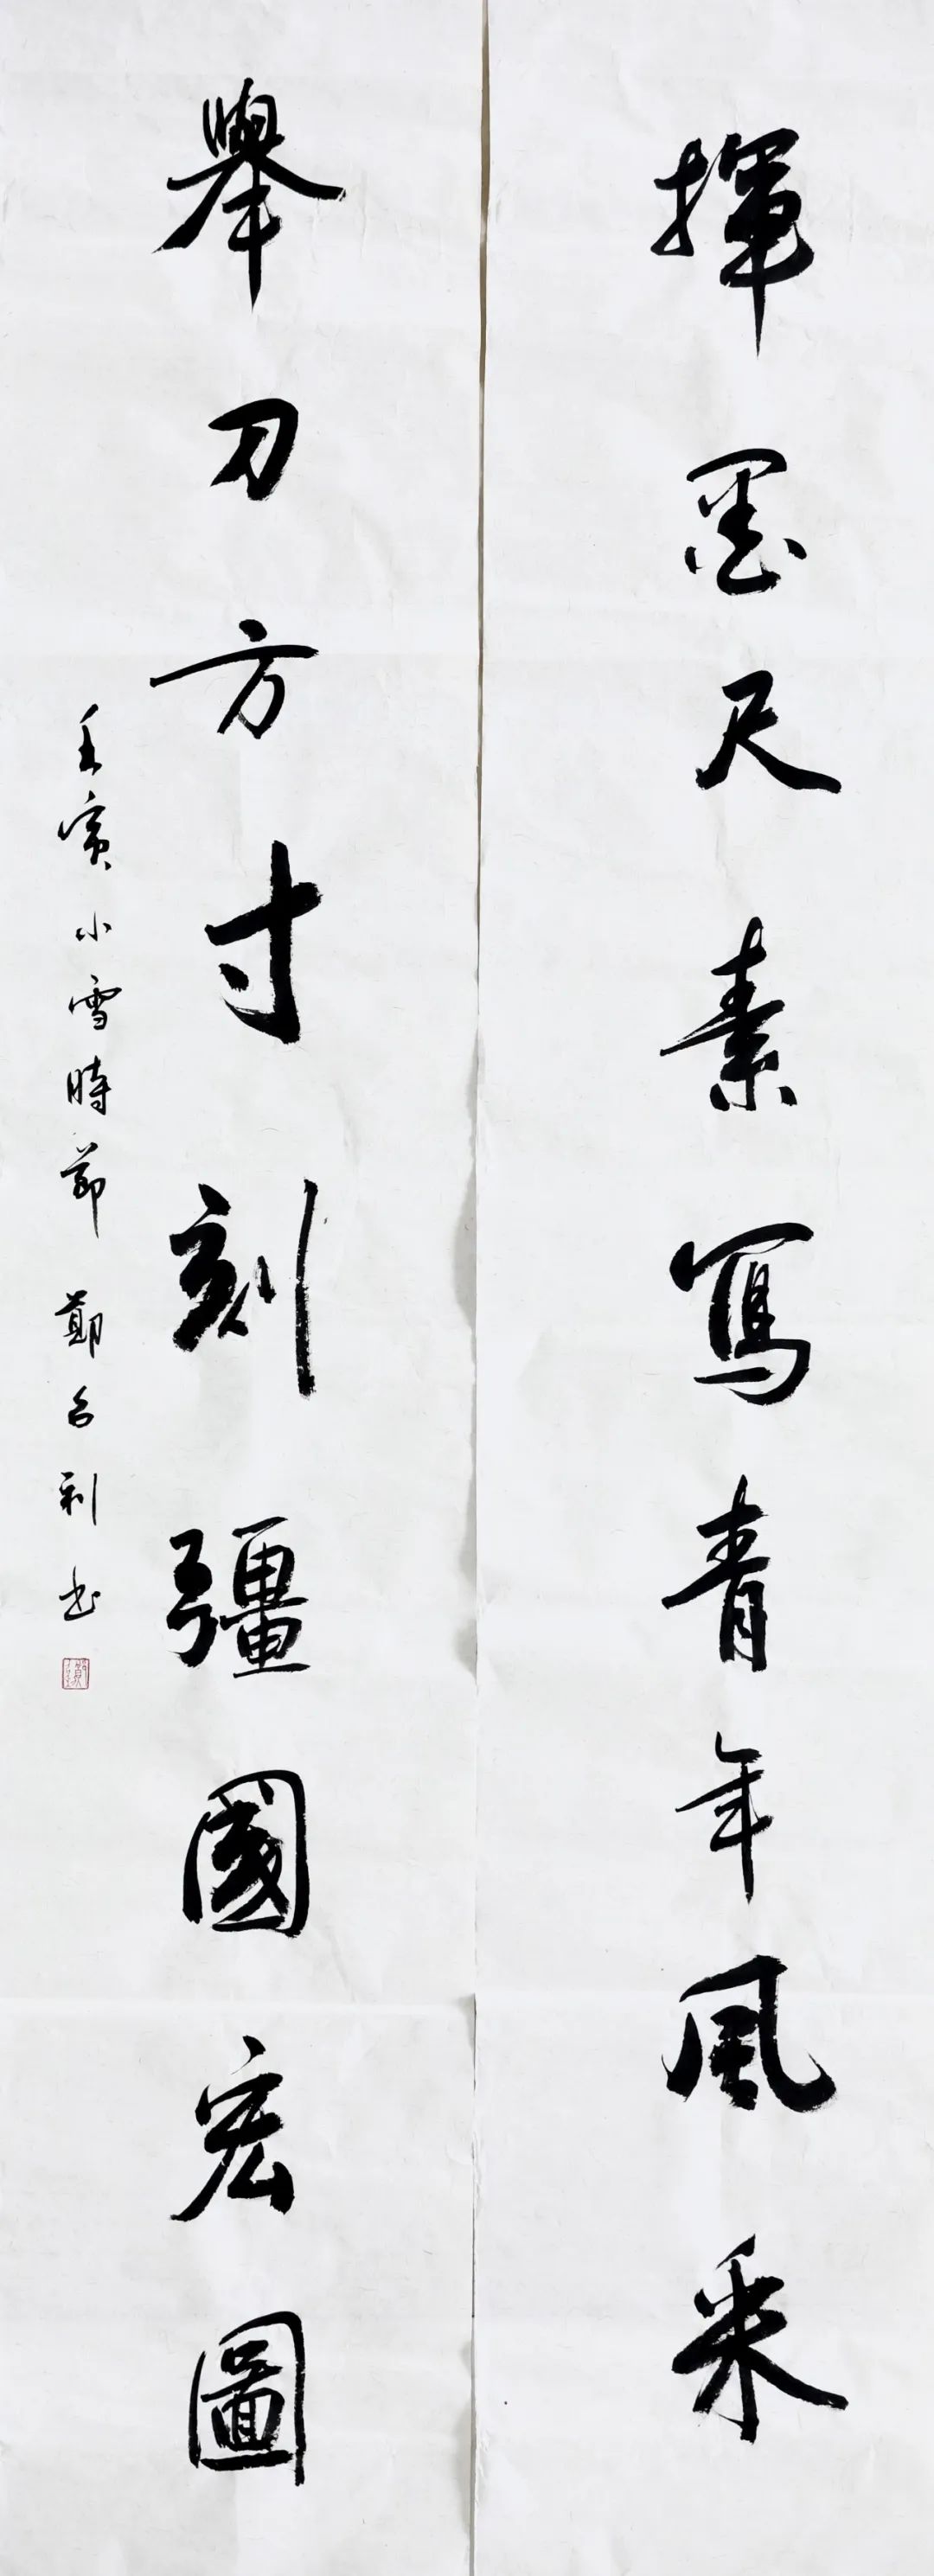 揮墨尺素寫青年風采
舉刀方寸刻彊國宏圖
壬寅小雪時節 鄭名利書